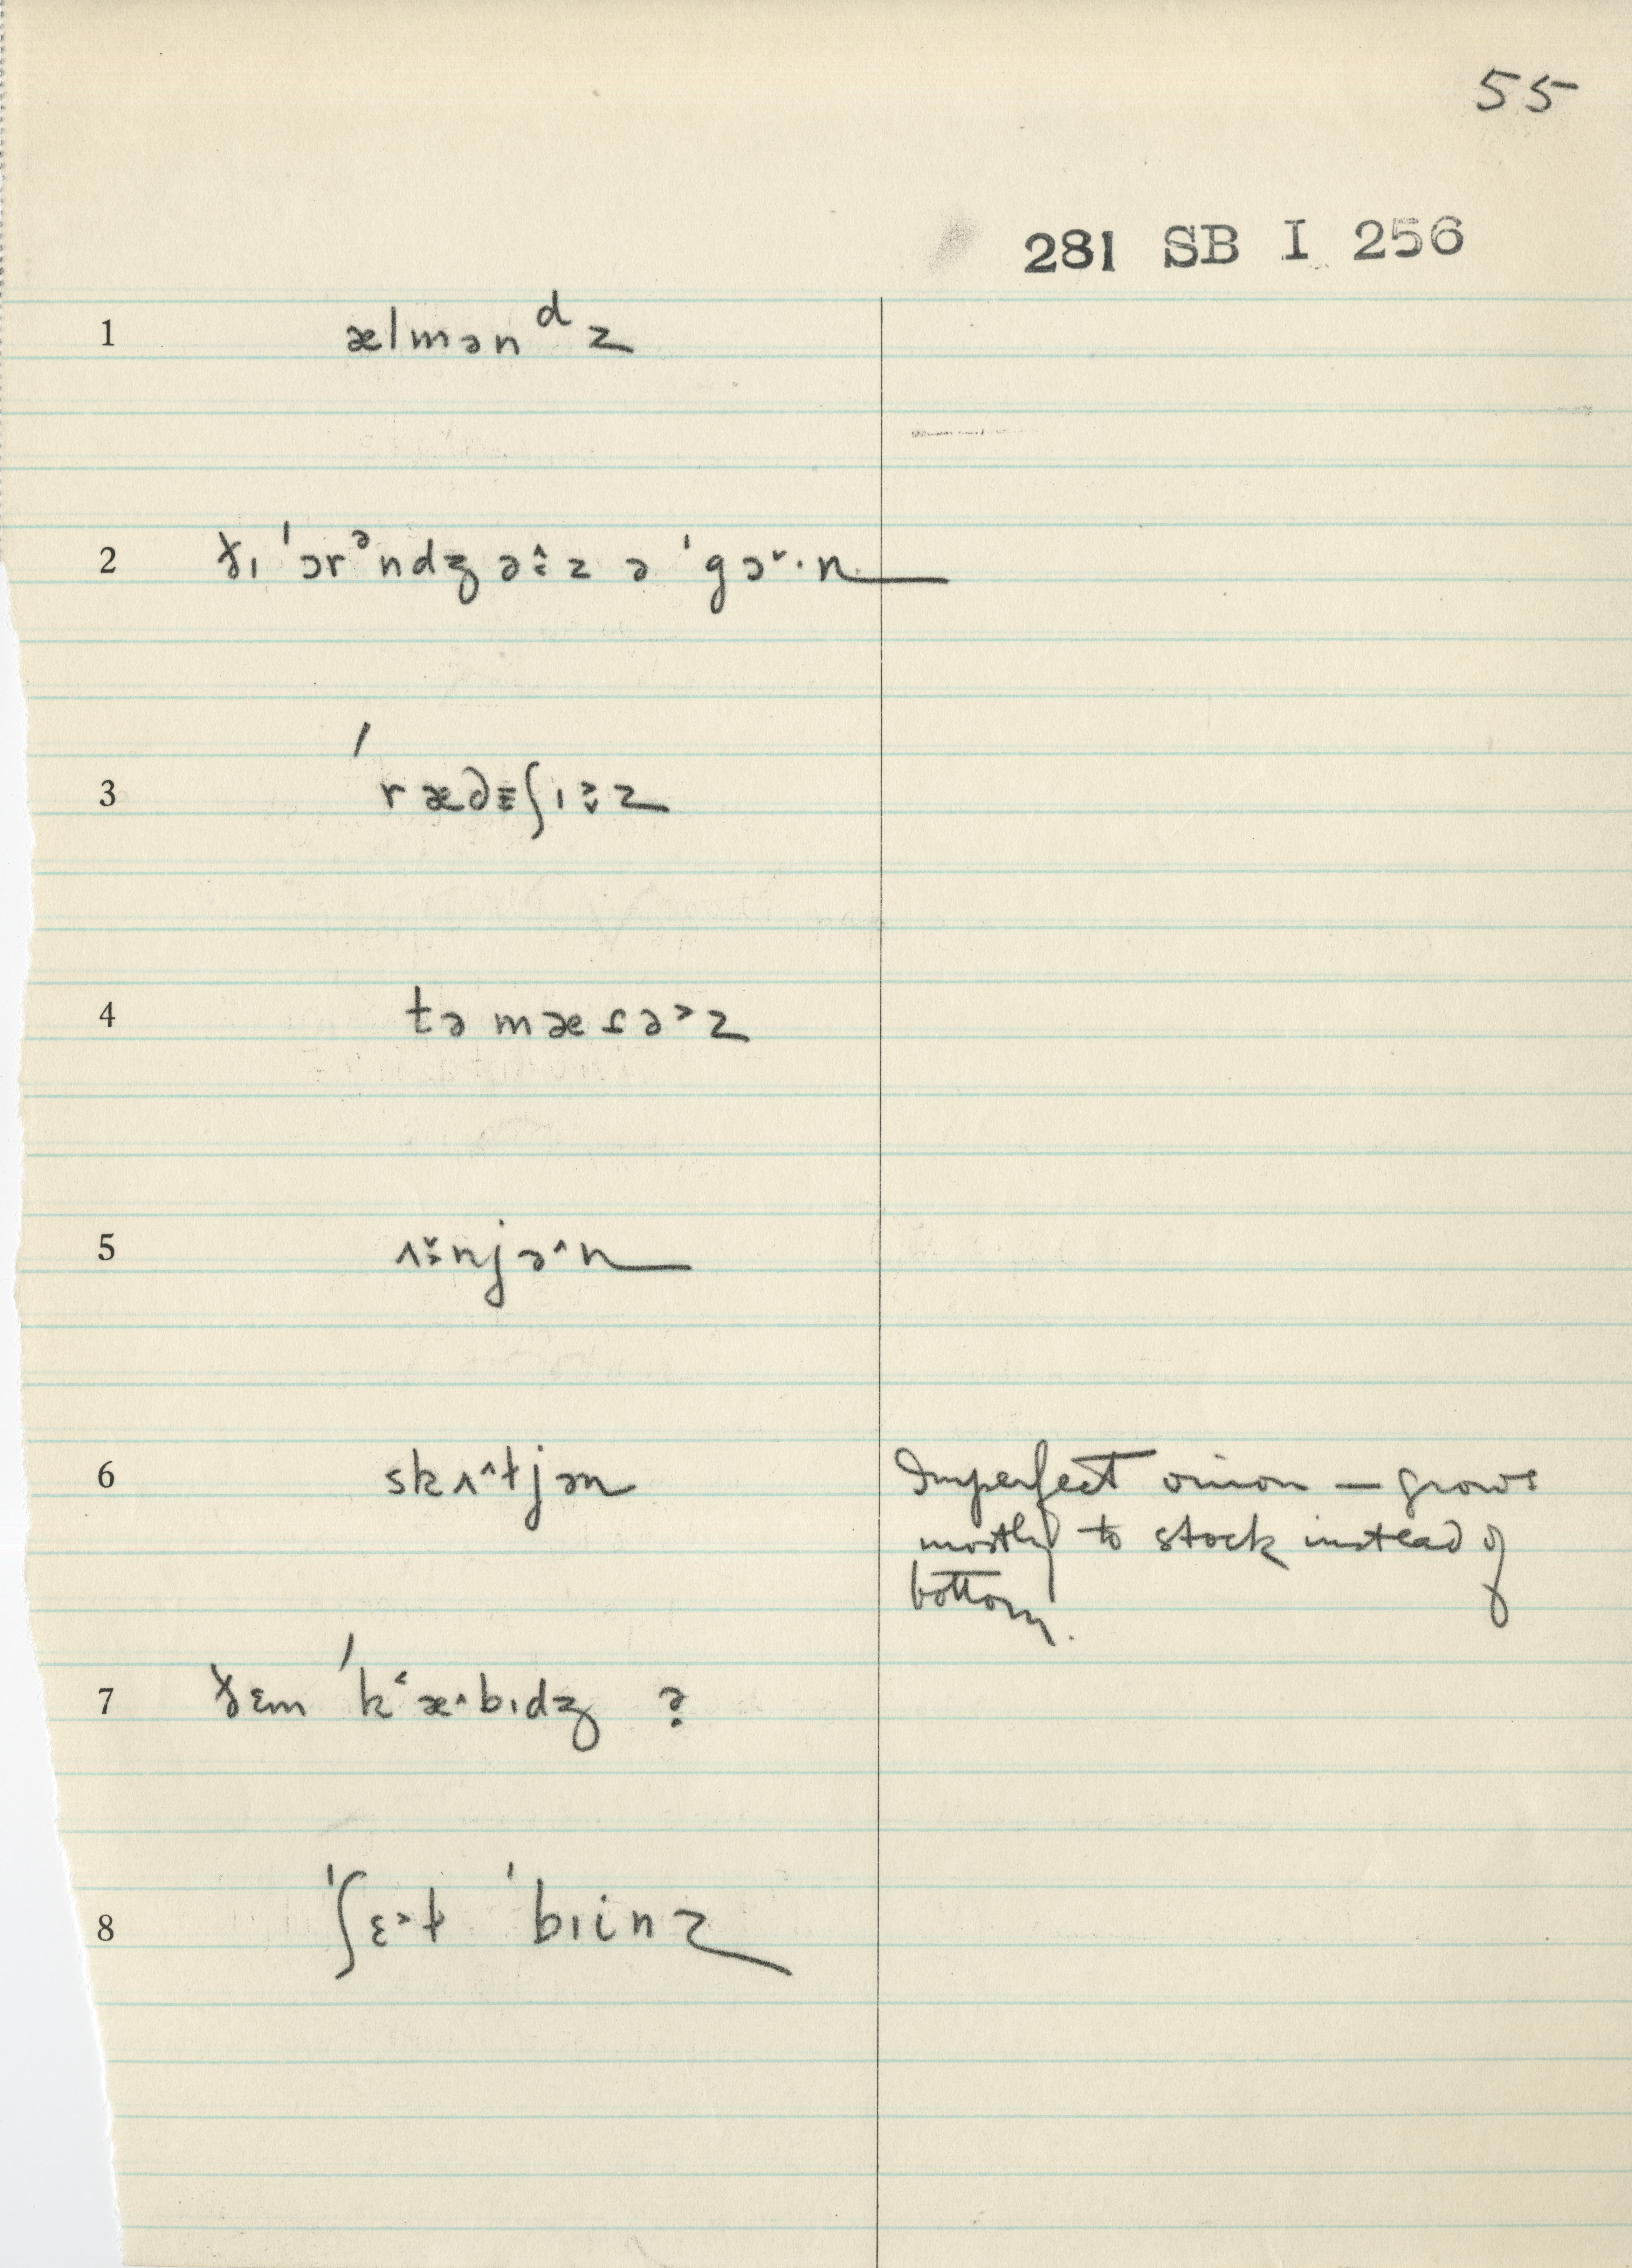 55
281 SB I 256
1 ælmənᵈz
2 ðɪ ˈɔrᵊndʒ ə˄z ə ˈgɔ˅·n
3 ˈræd̬ɪʃɪ˃z
4 təmæɾə˃z
5 ʌ˅njə˄n
6 skʌ˄t̬jən Imperfect onion — grows
mostly to stock instead of
bottom.
7 ðɛm ˈkʻæ˄·bɪdʒ ?
8 ˈʃɛ˃t ˈbɪinz